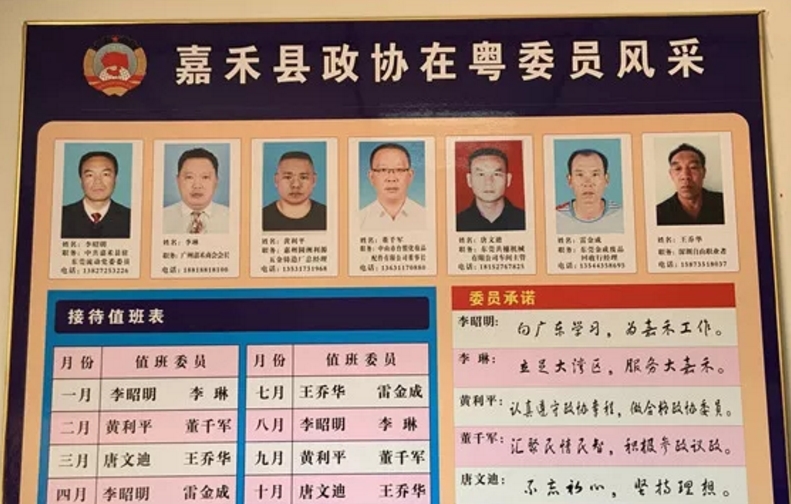 嘉禾县政协在粤委员风采
姓名：李昭明
职务：中共嘉禾县驻
东莞流动党委委员
电话：13827253226
姓名：李琳
职务：广州嘉禾商会会长
电话：18818818198
姓名：黄利平
职务：惠州园洲利源
五金铸造厂总经理
电话：13531731968
姓名：董千军
电话：13631170880
姓名：唐文迪
职务：东莞共臻机械
有限公司车间主管
电话：18152767825
姓名：雷金成
职务：东莞金成废品
回收行经理
电话：13544358695
姓名：王乔华
职务：深圳自由职业者
电话：15873518037
接待值班表
月份 值班委员 月份 值班委员
一月 李昭明 李琳 七月 王乔华 雷金成
二月 黄利平 董千军 八月 李昭明 李琳
三月 唐文迪 王乔华 九月 黄利平 董千军
四月 李昭明 雷金成 十月 唐文迪 王乔华
委员承诺
李昭明：向广东学习，为嘉禾工作。
李琳：立足大湾区，服务大嘉禾。
黄利平：认真遵守政协章程，做合格政协委员。
董千军：汇聚民情民智，积极参政议政。
唐文迪：不忘初心，坚持理想。